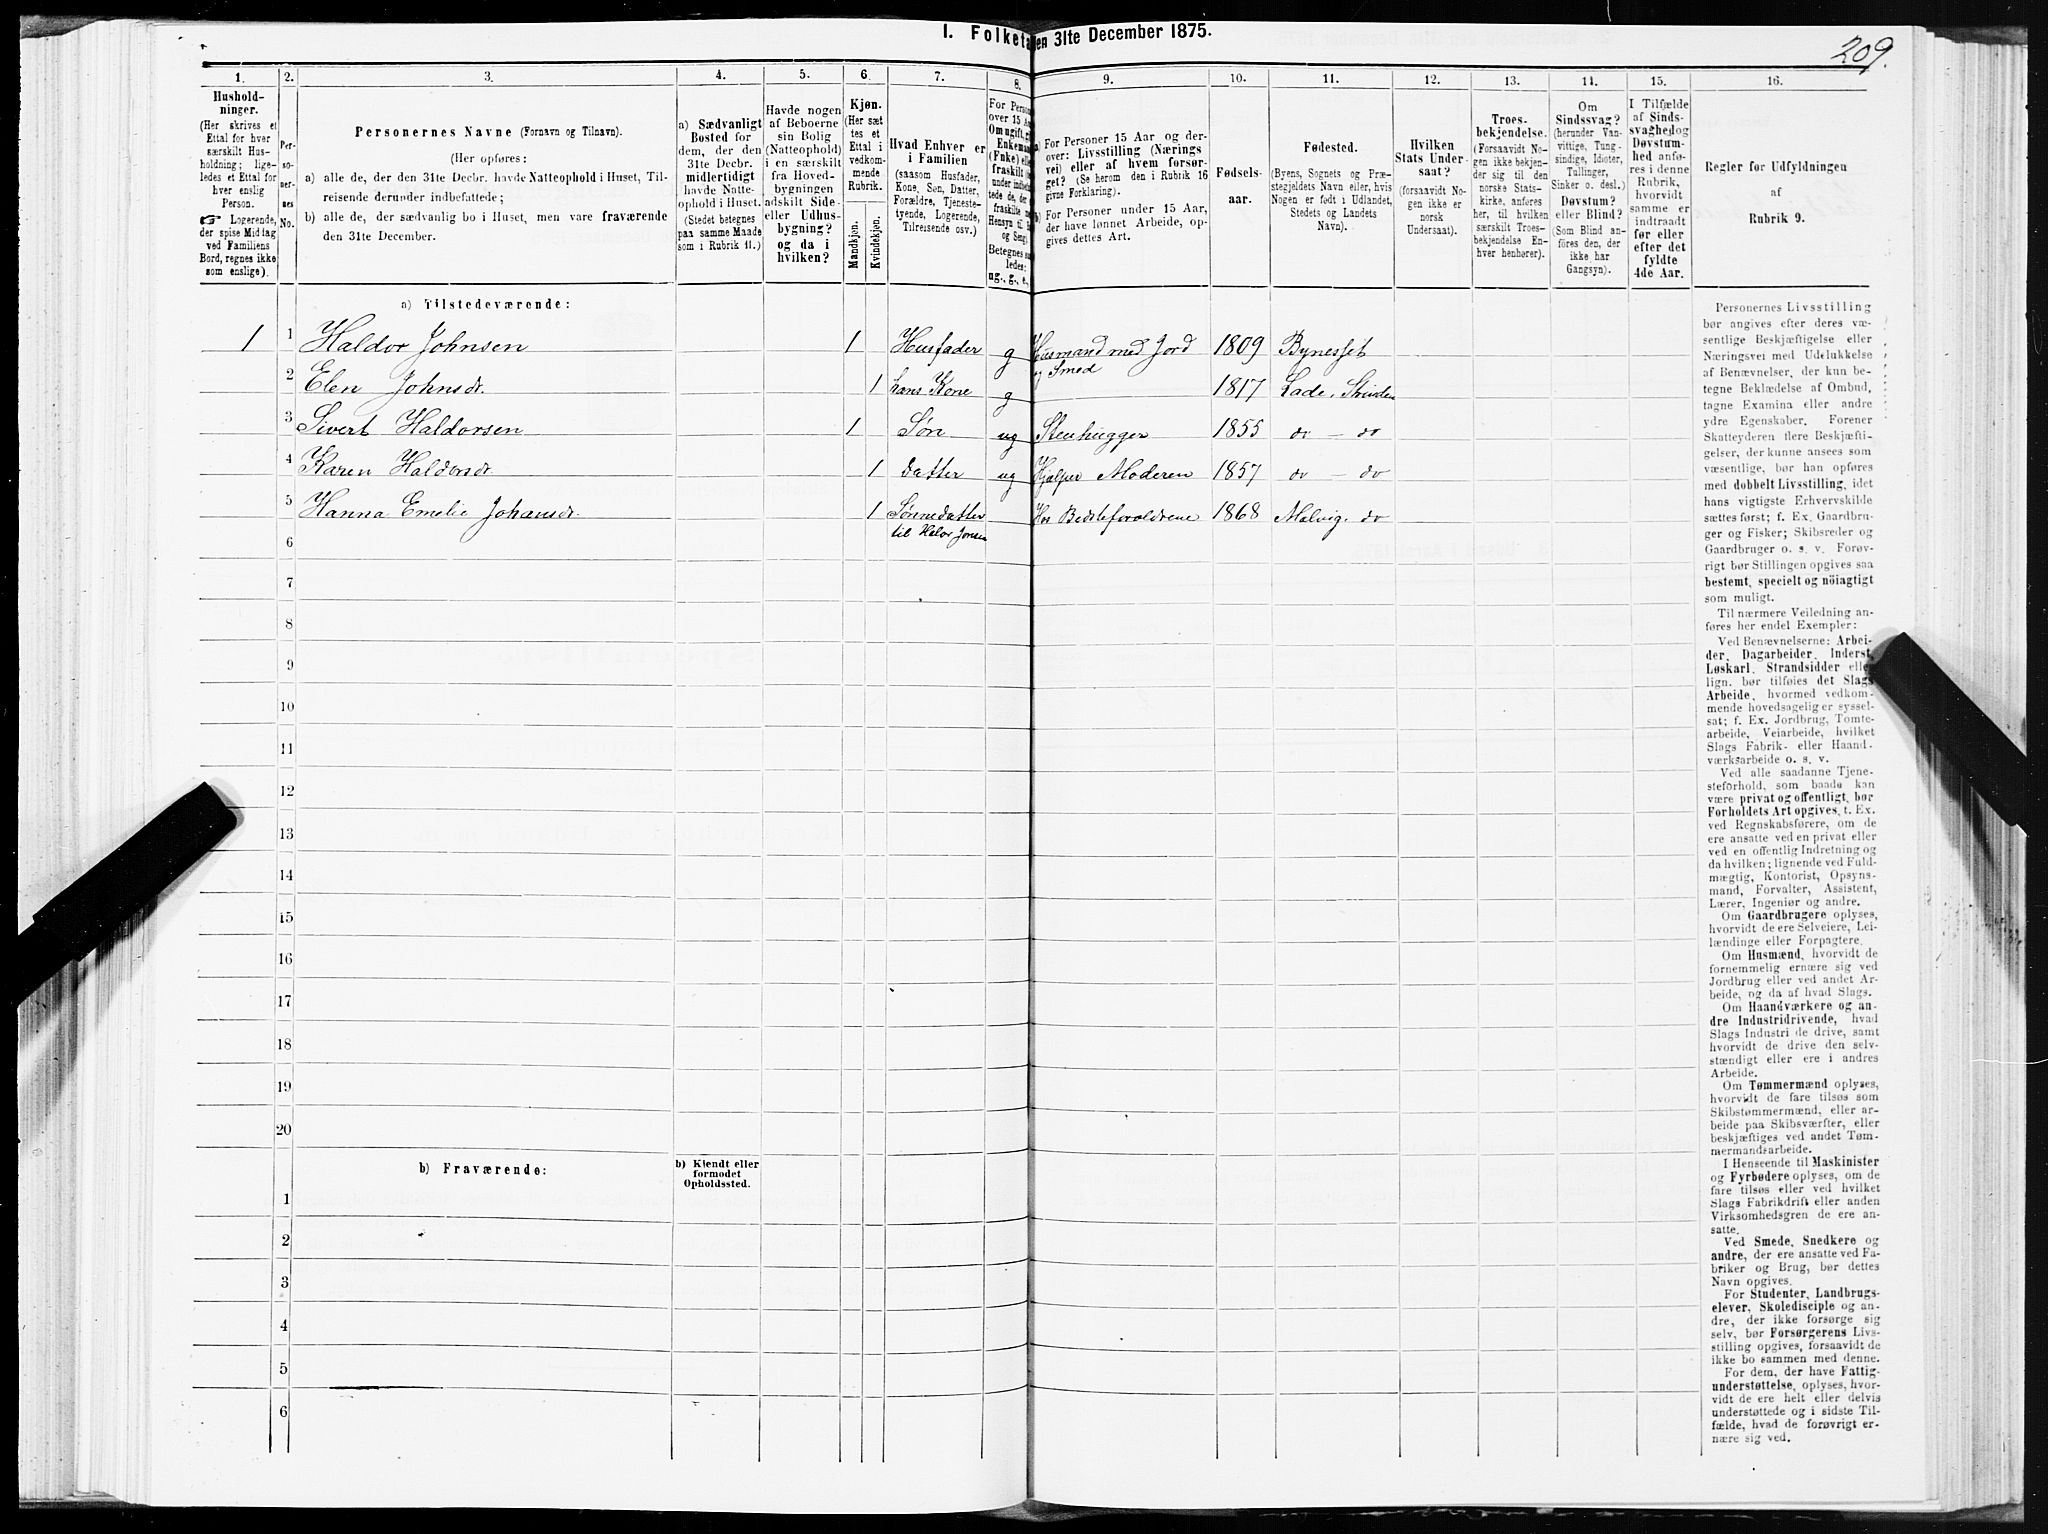 I. Folketa en 31te December 1875.
209.
1.
2.
3.
4.
5.
6.
7.
8.
9.
10.
11.
12.
13.
14.
15.
16.
Hushold-
ninger.
(Her skrives et
Ettal for hver
særskilt Hus-
holdning; lige-
ledes et Ettal for
hver enslig
Person.
☞ Logerende,
der spise Middag
ved Familiens
Bord, regnes ikke
som enslige).
Per-
so-
ner-
nes
No.
Personernes Navne (Fornavn og Tilnavn).
(Her opføres:
a) alle de, der den 31te Decbr. havde Natteophold i Huset, Til-
reisende derunder indbefattede;
b) alle de, der sædvanlig bo i Huset, men vare fraværende
den 31te December.
a) Sædvanligt
Bosted for
dem, der den
31te Decbr.
midlertidigt
havde Natte-
ophold i Huset.
(Stedet betegnes
paa samme Maade
som i Rubrik 11.)
Havde nogen
af Beboerne
sin Bolig
(Natteophold)
i en særskilt
fra Hoved-
bygningen
adskilt Side-
eller Udhus-
bygning?
og da i
hvilken?
Kjøn.
(Her sæt-
tes et
Ettal i
vedkom-
mende
Rubrik.
Mandkjøn.
Kvindekjøn.
Hvad Enhver er
i Familien
(saasom Husfader,
Kone, Søn, Datter,
Forældre, Tjeneste-
tyende, Logerende,
Tilreisende osv.)
For Perso
over 15 Aar
Om ugift, gi
Enkemand
(Enke) elle
fraskilt
ug., g., e,
a) For Personer 15 Aar og der-
over: Livsstilling (Nærings-
vei) eller af hvem forsør-
get? (Se herom den i Rubrik 16
givne Forklaring).
b) For Personer under 15 Aar,
der have lønnet Arbeide, op-
gives dettes Art.
Fødsels-
aar.
Fødested.
(Byens, Sognets og Præ-
stegjeldets Navn eller, hvis
Nogen er født i Udlandet,
Stedets og Landets
Navn).
Hvilken
Stats Under-
saat?
(forsaavidt No-
gen ikke er
norsk
Undersaat).
Troes-
bekjendelse.
(Forsaavidt No-
gen ikke bekjen-
der sig til den
norske Stats-
kirke, anføres
her, til hvilken
særskilt Troes-
bekjendelse En-
hver henhører).
Om
Sindssvag?
(herunder Van-
vittige, Tung-
sindige, Idioter,
Tullinger,
Sinker o. desl.)
Døvstum?
eller Blind?
(Som Blind an-
føres den, der
ikke har
Gangsyn).
I Tilfælde
af Sinds-
svaghed og
Døvstum-
hed anfø-
res i denne
Rubrik,
hvorvidt
samme er
indtraadt
før eller
efter det
fyldte
4de Aar.
Regler for Udfyldningen
af
Rubrik 9.
a) Tilstedeværende:
1 1 Haldor Johnsen 1 Husfader g Husmand med Jord og Smed 1809 Bynesset
2 Elen Johnsdr. 1 hans Kone g 1817 Lade, Strinden
3 Sivert Haldorsen 1 Søn ug Stenhugger 1855 do – do
4 Karen Haldorsdr. 1 datter ug Hjælper Moderen 1857 do – do
5 Hanna Emelie Johansdr. 1 Sønnedatter til Halor Jonsen Hos Bedsteforældrene 1868 Malvig. do
6
7
8
9
10
11
12
13
14
15
16
17
18
19
20
b) Fraværende:
b) Kjendt eller
formodet
Opholdssted.
1
2
3
4
5
6
Personernes Livsstilling
bør angives efter deres væ-
sentlige Beskjæftigelse eller
Næringsvei med Udelukkelse
af Benævnelser, der kun be-
tegne Beklædelse af Ombud,
tagne Examina eller andre
ydre Egenskaber. Forener
Skatteyderen flere Beskjæfti-
gelser, der kunne ansees som
væsentlige, bør han opføres
med dobbelt Livsstilling, idet
hans vigtigste Erhvervskilde
sættes først; f. Ex. Gaardbru-
ger og Fisker; Skibsreder og
Gaardbruger o. s. v. Forøv-
rigt bør Stillingen opgives saa
bestemt, specielt og nöiagtigt
som muligt.
Til nærmere Veiledning an-
føres her endel Exempler:
Ved Benævnelserne: Arbei-
der, Dagarbeider, Inderst,
Løskarl, Strandsidder eller
lign. bør tilføies det Slags
Arbeide, hvormed vedkom-
mende hovedsagelig er syssel-
sat; f. Ex. Jordbrug, Tomte-
arbeide, Veiarbeide, hvilket
Slags Fabrik- eller Haand-
værksarbeide o. s. v.
Ved alle saadanne Tjene-
steforhold, som baade kan
være privat og offentligt, bør
Forholdets Art opgives, t. Ex.
ved Regnskabsførere, om de
ere ansatte ved en privat eller
ved en offentlig Indretning og
da hvilken; lignende ved Fuld-
mægtig, Kontorist, Opsyns-
mand, Forvalter, Assistent,
Lærer, Ingeniør og andre.
Om Gaardbrugere oplyses,
hvorvidt de ere Selveiere, Lei-
lændinge eller Forpagtere.
Om Husmænd, hvorvidt de
fornemmelig ernære sig ved
Jordbrug eller ved andet Ar-
beide, og da af hvad Slags.
Om Haandværkere og an-
dre Industridrivende, hvad
Slags Industri de drive, samt
hvorvidt de drive den selv-
stændigt eller ere i andres
Arbeide.
Om Tømmermænd oplyses,
hvorvidt de fare tilsøs som
Skibstømmermænd, eller ar-
beide paa Skibsværfter, eller
beskjæftiges ved andet Tøm-
mermandsarbeide.
I Henseende til Maskinister
og Fyrbødere oplyses, om de
fare tilsøs eller ved hvilket
Slags Fabrikdrift eller anden
Virksomhedsgren de ere an-
satte.
Ved Smede, Snedkere og
andre, der ere ansatte ved Fa-
briker og Brug, bør dettes
Navn opgives.
For Studenter, Landbrugs-
elever, Skoledisciple og an-
dre, der ikke forsørge sig
selv, bør Forsørgerens Livs-
stilling opgives, forsaavidt de
ikke bo sammen med denne.
For dem, der have Fattig-
understøttelse, oplyses, hvor-
vidt de ere helt eller delvis
understøttede og i sidste Til-
fælde, hvad de forøvrigt er-
nære sig ved.